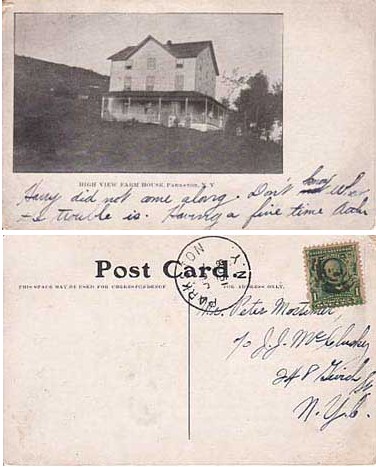 HIGH VIEW FARM HOUSE, PARKSTON, N. Y.
Harry did not come along. Don't know
trouble is. Having a fine time
Post Card.
THIS SPACE MAY BE USED FOR CORRESPONDENCE
FOR ADDRESS ONLY.
PARKSTON N.Y.
Mr. Peter Mortimer,
c/o J.J. McCluskey
248
N.Y.C.